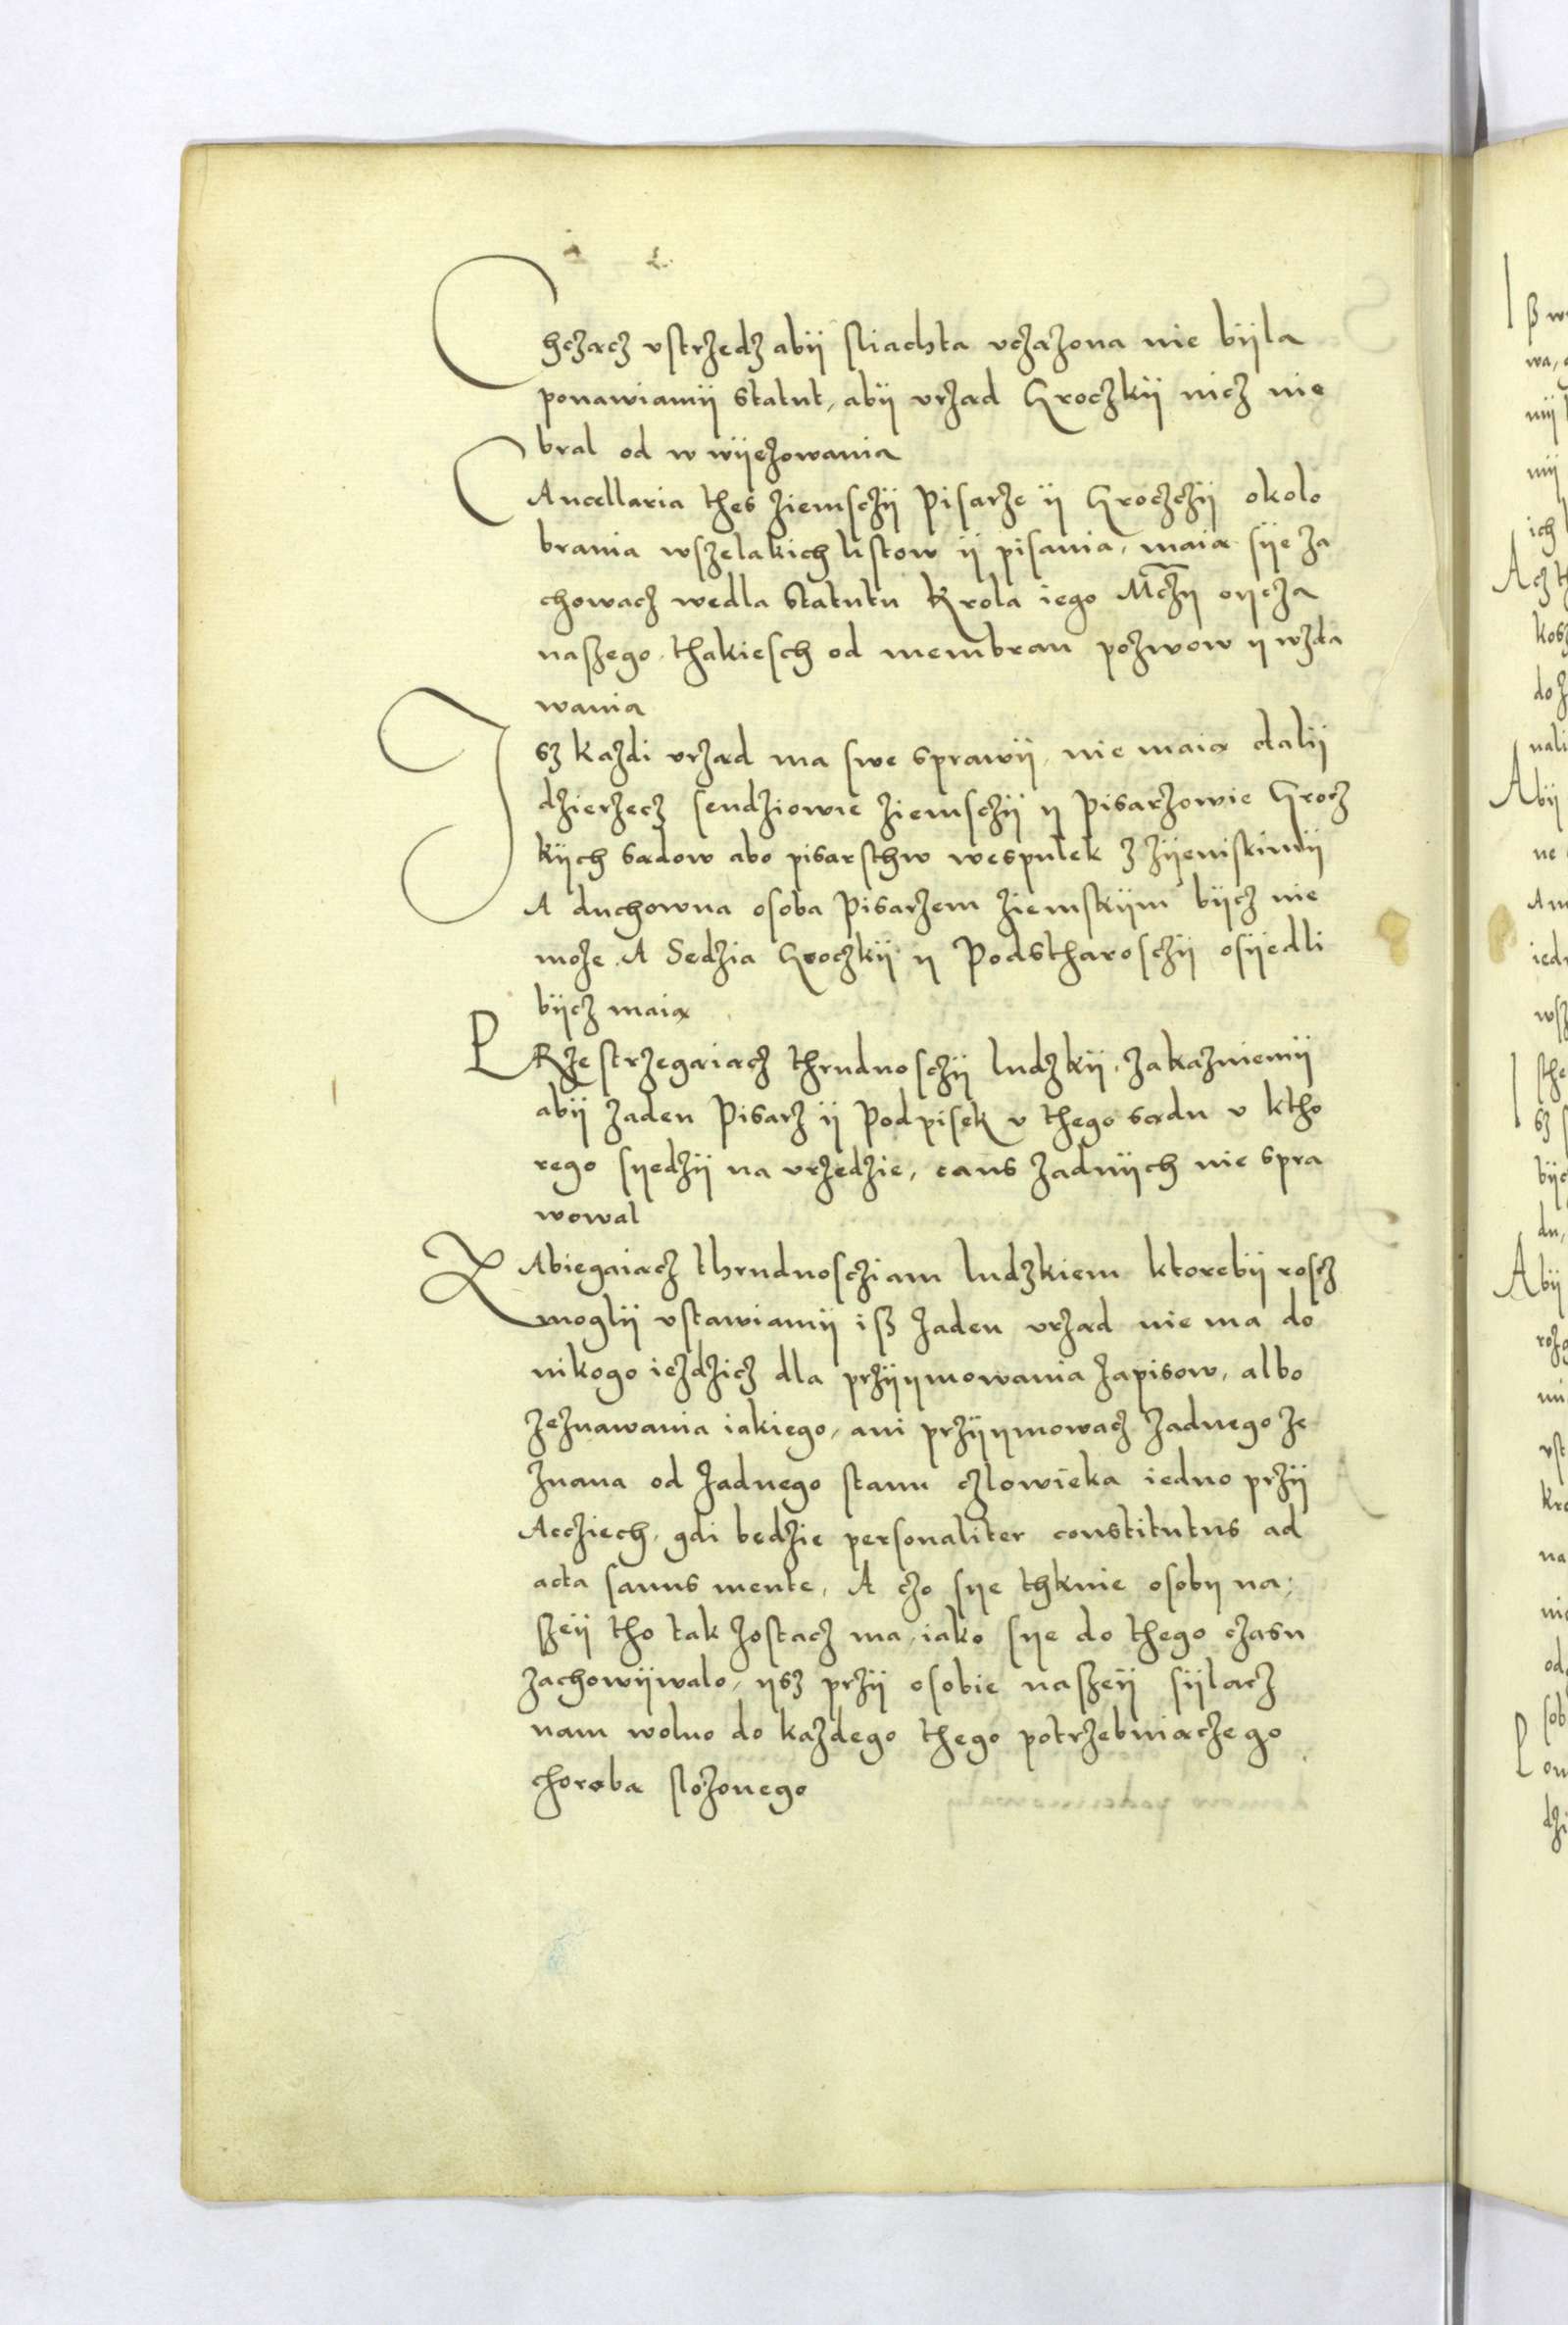 Chczącz vstrzedz abÿ sliachta vcząziona nie bÿla
ponawiamÿ Statut, abÿ vrząd Groczkÿ nicz nie
bral od w wÿęzowania
CAncellaria thes Ziemsczÿ Pisarze ÿ Groczczÿ okolo
brania wszelakich listow ÿ pisania, maią sÿe za
chowacz wedla Statutu Krola iego Mczÿ oycza
naszego, thakiesch od membran pozwow y wzda
wania
Isz kazdi vrząd ma swe sprawÿ, nie maią dalÿ
dzierzecz sendziowie ziemsczÿ y Pisarzowie Grocz
kÿch sądow abo pisarsthw wespulek z zÿemskimÿ
A duchowna osoba Pisarzem ziemskÿm bÿcz nie
moze. A Sedzia Groczkÿ y Podstharosczÿ osÿedli
bÿcz maią
PRzestrzegaiącz thrudnosczÿ ludzkÿ, zakazuiemÿ
abÿ zaden Pisarz ÿ Podpisek v thego sądu v ktho
rego syedzÿ na vrzedzie, caus zadnÿch nie spra
wowal
ZAbiegaiącz thrudnosciam ludzkiem ktorebÿ roscz
moglÿ vstawiamÿ isz zaden vrząd nie ma do
nikogo iezdzicz dla przÿymowania zapisow, albo
zeznawania iakiego, ani przÿymowacz zadnego ze
znana od zadnego stanu czlowieka iedno przÿ
Accziech, gdi będzie personaliter constitutus ad
acta sanus mente, A czo sye thknie osoby na,
szeÿ tho tak zostacz ma, iako sye do thego czasu
zachowÿwalo, ysz przÿ osobie naszeÿ sÿlacz
nam wolno do kazdego thego potrzebuiączego
chorobą slozonego